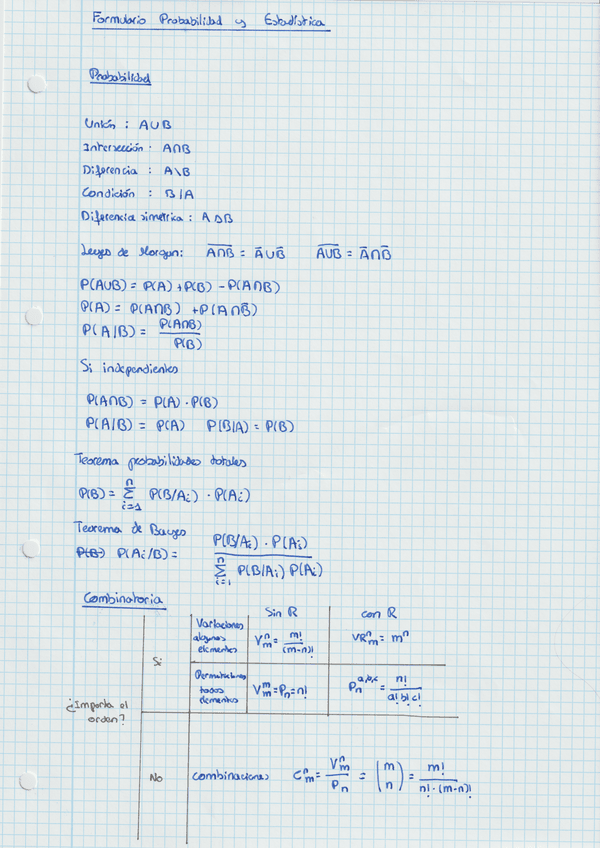 Formulario Probabilidad y Estadística
Probabilidad
Unión : A∪B
Intersección : A∩B
Diferencia : A\B
Condición : B|A
Diferencia simétrica : A△B
Leyes de Morgan: \overline{A∩B} = Ā∪B̄ \overline{A∪B} = Ā∩B̄
P(A∪B) = P(A) + P(B) - P(A∩B)
P(A) = P(A∩B) + P(A∩B̄)
P(A/B) = P(A∩B) / P(B)
Si independientes
P(A∩B) = P(A) · P(B)
P(A/B) = P(A) P(B/A) = P(B)
Teorema probabilidades totales
P(B) = \sum_{i=1}^{n} P(B/A_i) · P(A_i)
Teorema de Bayes
P(B) P(A_i/B) = \frac{P(B/A_i) · P(A_i)}{\sum_{i=1}^{n} P(B/A_i) P(A_i)}
Combinatoria
Sin R con R
¿Importa el orden?
Si
Variaciones algunos elementos V_m^n = \frac{m!}{(m-n)!} VR_m^n = m^n
Permutaciones todos elementos V_m^m = P_n = n! P_n^{a,b,c} = \frac{n!}{a! b! c!}
No
Combinaciones C_m^n = \frac{V_m^n}{P_n} = \binom{m}{n} = \frac{m!}{n! · (m-n)!}